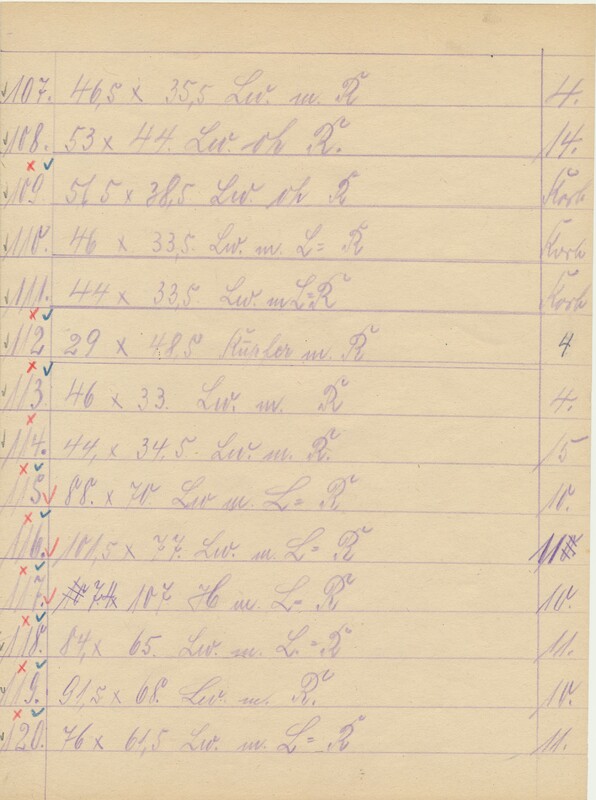 107. 46,5 x 35,5 Lw. m. R 4.
108. 53 x 44. Lw. oh R. 14.
109 51 5 x 38,5 Lw. oh R Korb
110. 46 x 33,5. Lw. m. L= R Korb
111. 44 x 33,5. Lw. m L=R Korb
112 29 x 48,5 Kupfer m. R 4
113 46 x 33. Lw. m. R 4.
114. 44, x 34,5. Lw. m. R. 15
115. 88. x 70. Lw m. L= R 10.
116. 101,5 x 77. Lw. m. L= R 11
117. 74 107 H m. L= R 10.
118. 84, x 65. Lw. m. L.=R 11.
119. 91,5 x 68. Lw. m. R. 10.
120. 76 x 61,5 Lw. m. L=R 11.